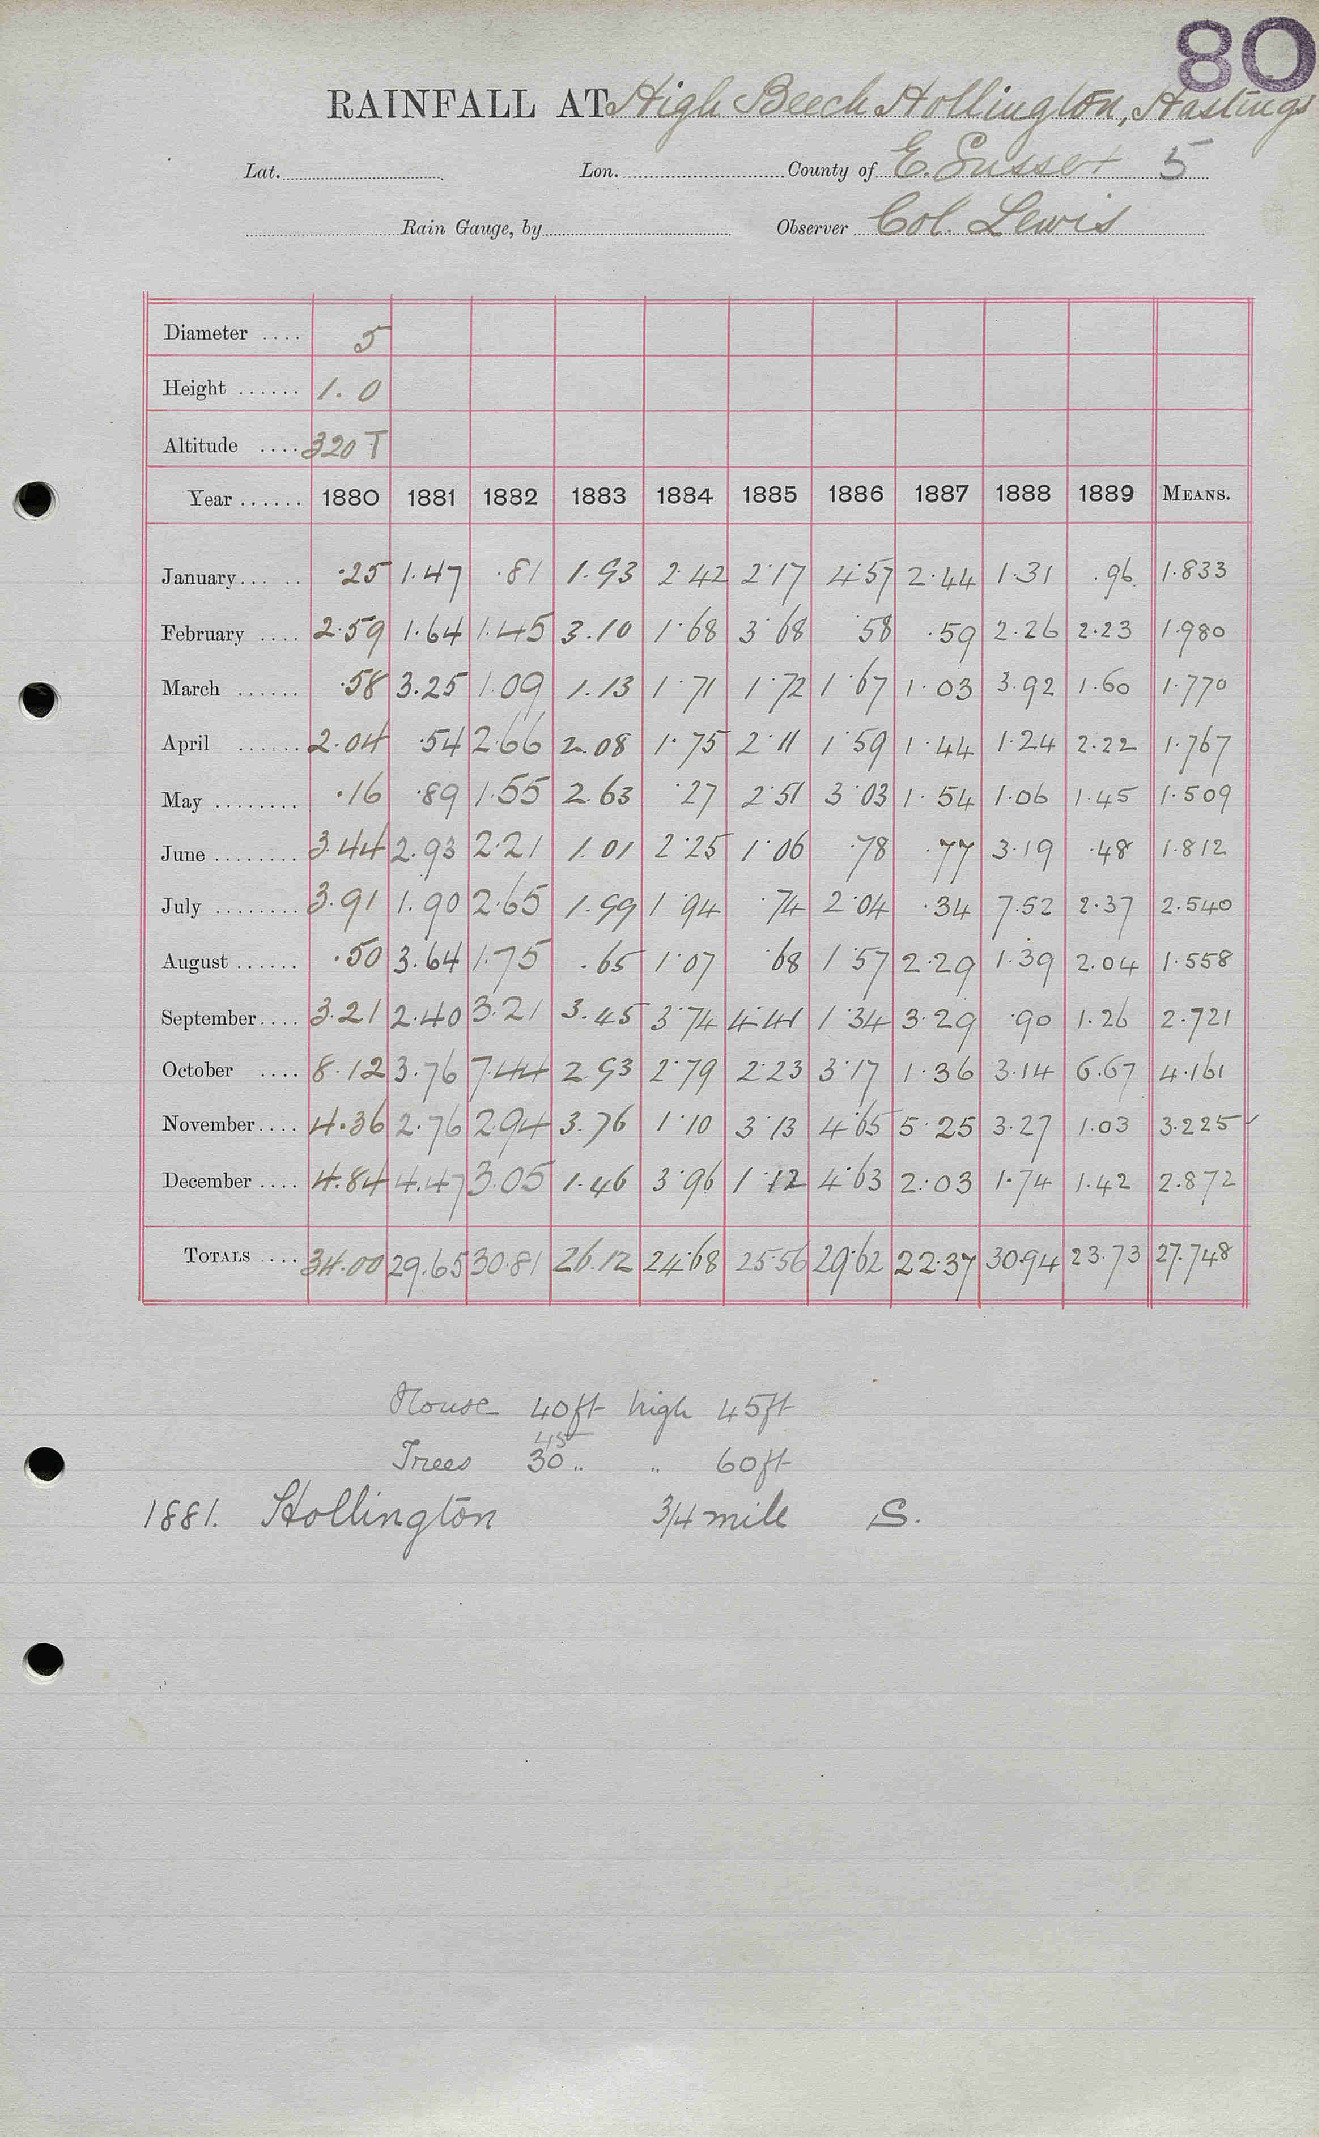 80
RAINFALL AT High Beech Hollington, Hastings
Lat. Lon. County of E. Sussex 5
Rain Gauge, by Observer Col. Lewis
Diameter .... 5
Height ...... 1.0
Altitude .... 320 T
Year ...... 1880 1881 1882 1883 1884 1885 1886 1887 1888 1889 MEANS.
January ... .25 1.47 .81 1.93 2.42 2.17 4.57 2.44 1.31 .96 1.833
February .... 2.59 1.64 1.45 3.10 1.68 3.68 .58 .59 2.26 2.23 1.980
March ...... .58 3.25 1.09 1.13 1.71 1.72 1.67 1.03 3.92 1.60 1.770
April ...... 2.04 .54 2.66 2.08 1.75 2.11 1.59 1.44 1.24 2.22 1.767
May ........ .16 .89 1.55 2.63 .27 2.51 3.03 1.54 1.06 1.45 1.509
June ........ 3.44 2.93 2.21 1.01 2.25 1.06 .78 .77 3.19 .48 1.812
July ........ 3.91 1.90 2.65 1.99 1.94 .74 2.04 .34 7.52 2.37 2.540
August ...... .50 3.64 1.75 .65 1.07 .68 1.57 2.29 1.39 2.04 1.558
September .... 3.21 2.40 3.21 3.45 3.74 4.41 1.34 3.29 .90 1.26 2.721
October .... 8.12 3.76 7.44 2.93 2.79 2.23 3.17 1.36 3.14 6.67 4.161
November .... 4.36 2.76 2.94 3.76 1.10 3.13 4.65 5.25 3.27 1.03 3.225
December .... 4.84 4.47 3.05 1.46 3.96 1.12 4.63 2.03 1.74 1.42 2.872
TOTALS .... 34.00 29.65 30.81 26.12 24.68 25.56 29.62 22.37 30.94 23.73 27.748
House 40ft high 45ft
45
Trees 30 " " 60ft
1881. Hollington 3/4 mile S.